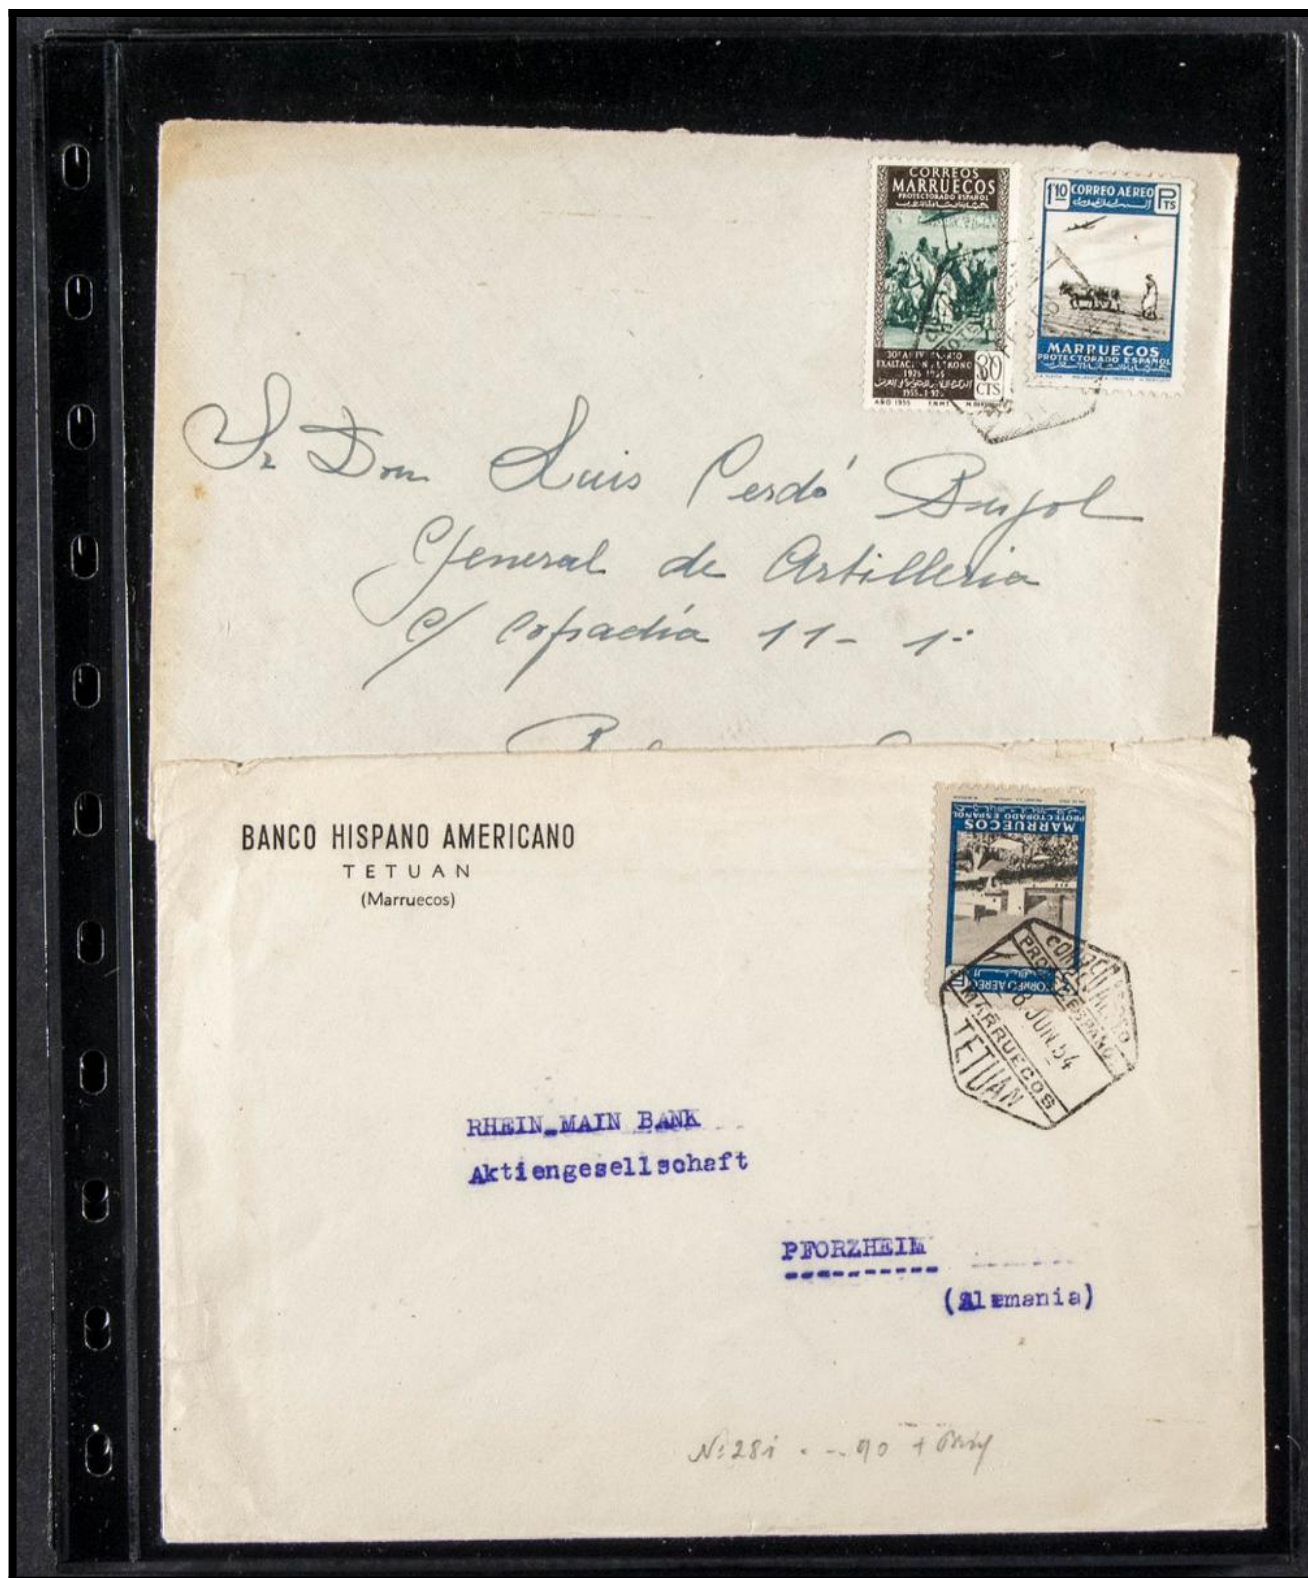 CORREOS
MARRUECOS
PROTECTORADO ESPAÑOL
30 CTS
AÑO 1955 F.N.M.T.
1'10 CORREO AEREO PTS
MARRUECOS
PROTECTORADO ESPAÑOL
Sr Don Luis Cerdó Pujol
General de Artilleria
c/ Cofradía 11- 1º
BANCO HISPANO AMERICANO
TETUAN
(Marruecos)
MARRUECOS
PROTECTORADO ESPAÑOL
CORREO AEREO
CORREO AEREO
PROT. ESPAÑOL
8 JUN. 54
MARRUECOS
TETUAN
RHEIN_MAIN BANK
Aktiengesellschaft
PFORZHEIM
(Alemania)
90 +